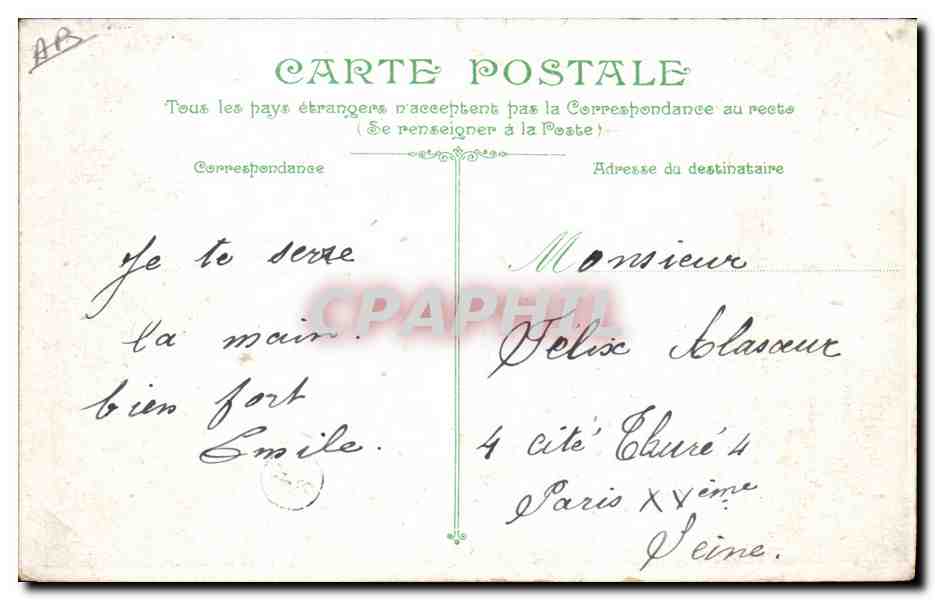 AB
CARTE POSTALE
Tous les pays étrangers n'acceptent pas la Correspondance au recto
(Se renseigner à la Poste)
Correspondance
Je te serre
la main.
bien fort
Emile.
Adresse du destinataire
Monsieur
Félix Alasœur
4 cité Thuré 4
Paris XVème
Seine.
CPAPHIL